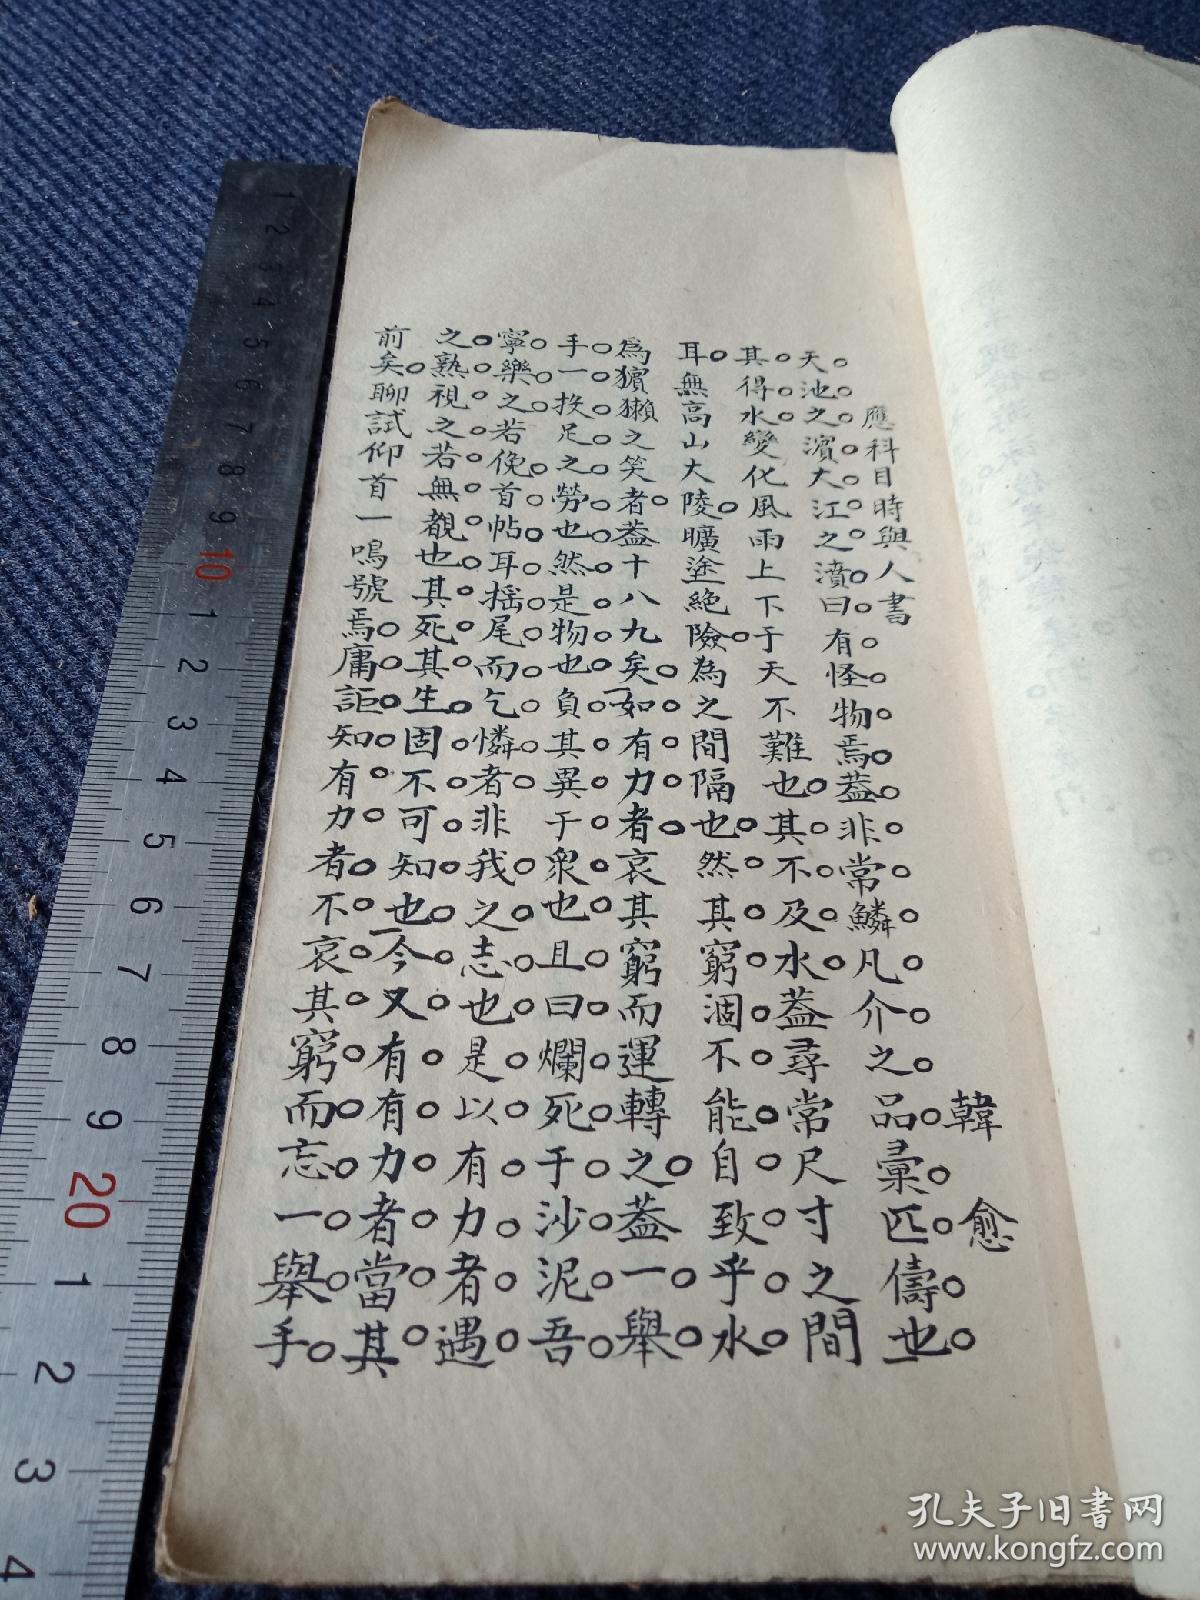 應科目時與人書 韓愈
天池之濱大江之濆曰有怪物焉葢非常鱗凡介之品彙匹儔也
其得水變化風雨上下于天不難也其不及水葢尋常尺寸之間
耳無高山大陵曠塗絕險為之間隔也然其窮涸不能自致乎水
爲獱獺之笑者葢十八九矣如有力者哀其窮而運轉之葢一舉
手一投足之勞也然是物也負其異于衆也且曰爛死于沙泥吾
寧樂之若俛首帖耳摇尾而乞憐者非我之志也是以有力者遇
之熟視之若無覩也其死其生固不可知也今又有有力者當其
前矣聊試仰首一鳴號焉庸詎知有力者不哀其窮而忘一舉手
1 2 3 4 5 6 7 8 9 10 1 2 3 4 5 6 7 8 9 20 1 2 3 4
孔夫子旧书网
www.kongfz.com